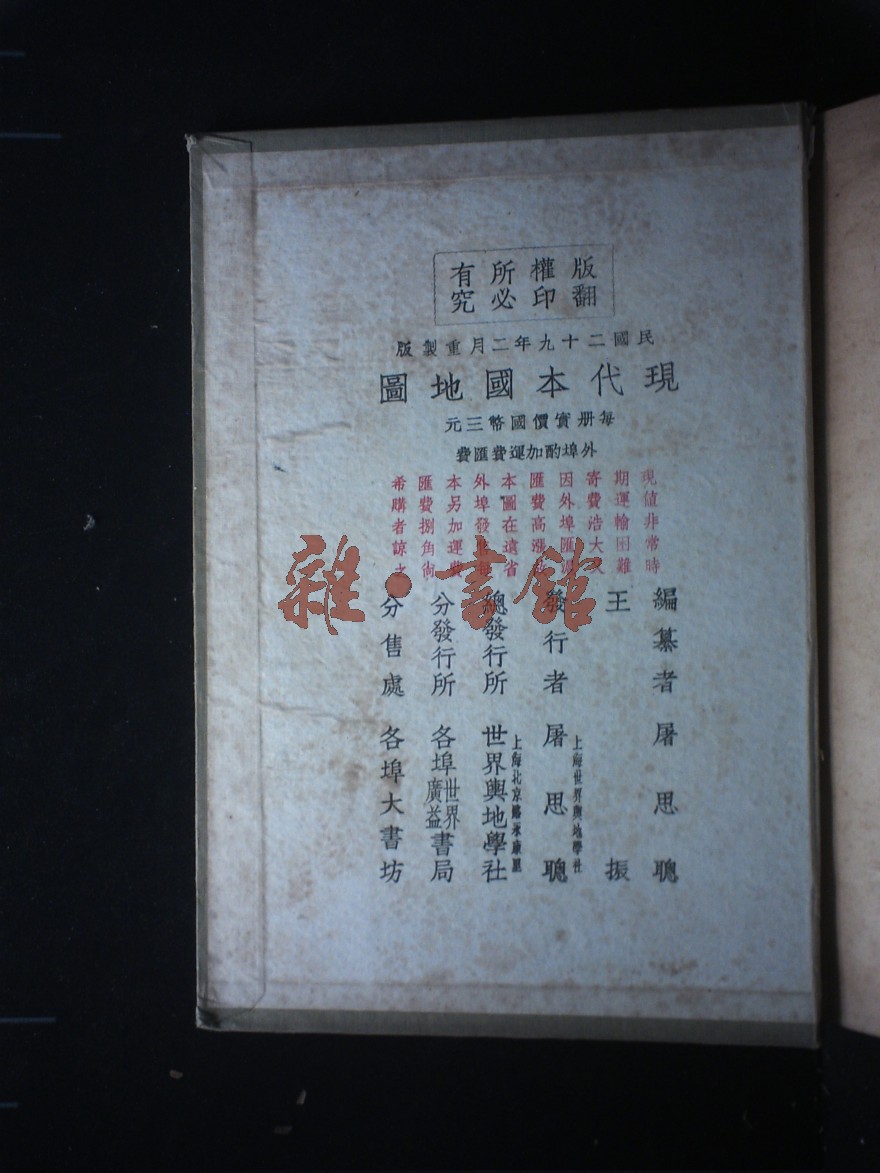 版權所有
翻印必究
民國二十九年二月重製版
現代本國地圖
每册實價國幣三元
外埠酌加運費匯費
現值非常時
期運輸困難
寄費浩大
因外埠匯
匯費高漲
本圖在遠省
外埠發售每
本另加運費
匯費捌角尙
希購者諒之
編纂者 屠思聰
王振
發行者 上海世界輿地學社 屠思聰
總發行所 上海北京路承康里 世界輿地學社
分發行所 各埠 世界 廣益 書局
分售處 各埠大書坊
雜·書館